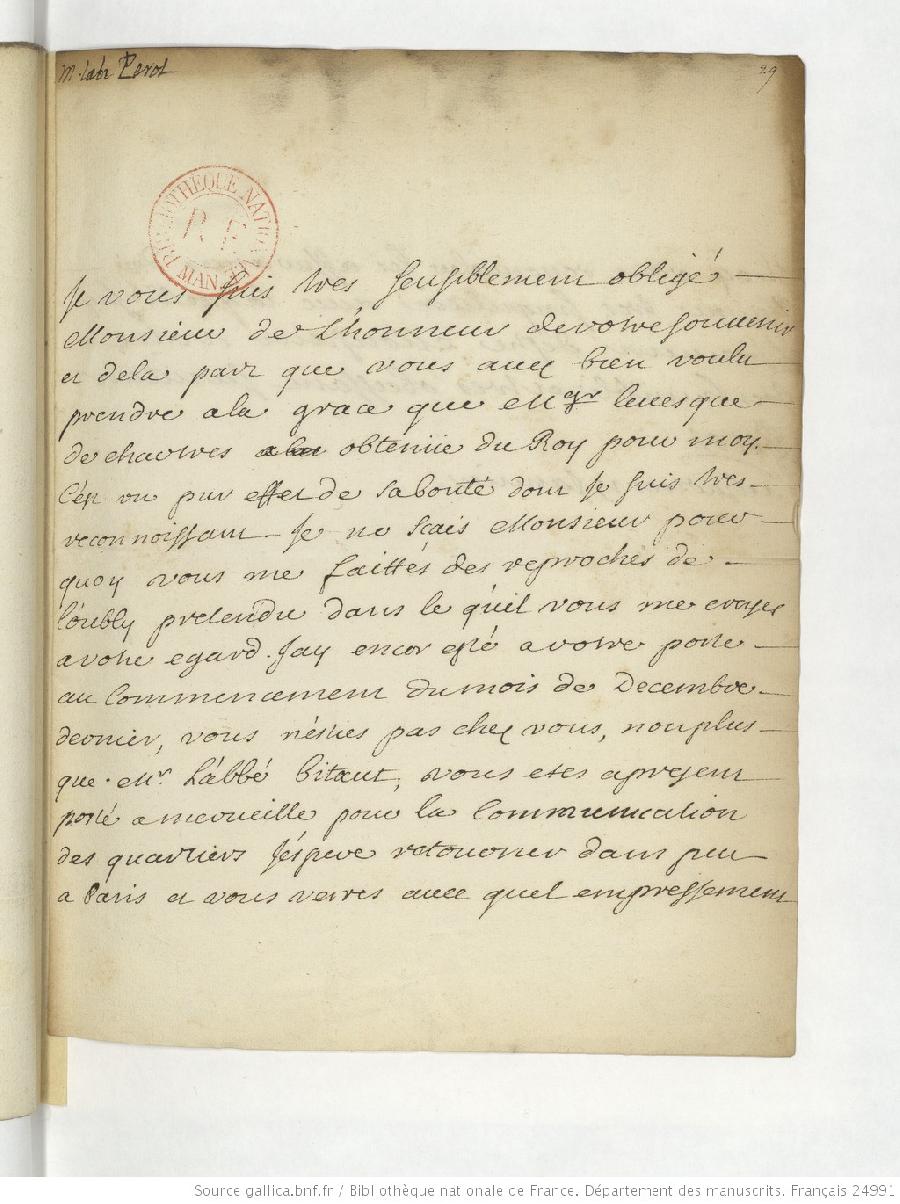 M. l'abé Perot
29
BIBLIOTHÈQUE NATIONALE
R F
MAN
Je vous suis tres sensiblement obligé
Monsieur de L'honneur de votre souvenir
et dela part que vous avez bien voulu
prendre ala grace que Mgr levesque
de chartres obtenüe du Roy pour moy.
C'est un pur effet de sa bonté dont Je suis tres
reconnoissant Je ne scais Monsieur pour
quoy vous me faittés des reproches de
l'oubly pretendu dans le quil vous me croyez
a votre egard. Jay encor esté a votre porte
au Commencement du mois de Decembre
dernier, vous n'éties pas chez vous, non plus
que Mr L'abbé bitaut, vous etes apresent
porté a merveille pour la Communication
des quartiers J'éspere retourner dans peu
a Paris et vous verres avec quel empressement
Source gallica.bnf.fr / Bibliothèque nationale de France. Département des manuscrits. Français 24991